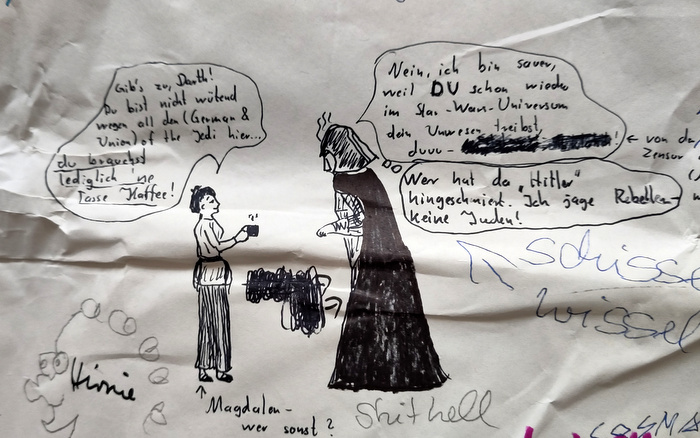 Gib's zu, Darth!
Du bist nicht wütend
wegen all den (German &
Union) of the Jedi hier...
du brauchst
lediglich 'ne
Tasse Kaffee!
Nein, ich bin sauer,
weil DU schon wieder
im Star-Wars-Universum
dein Unwesen treibst
duuu- ! ← von der
Zensur
Wer hat da "Hitler"
hingeschmiert. Ich jage Rebellen-
keine Juden!
Schüssel
Wissel
Hinnie
↑
Magdalen-
wer sonst?
Shithell